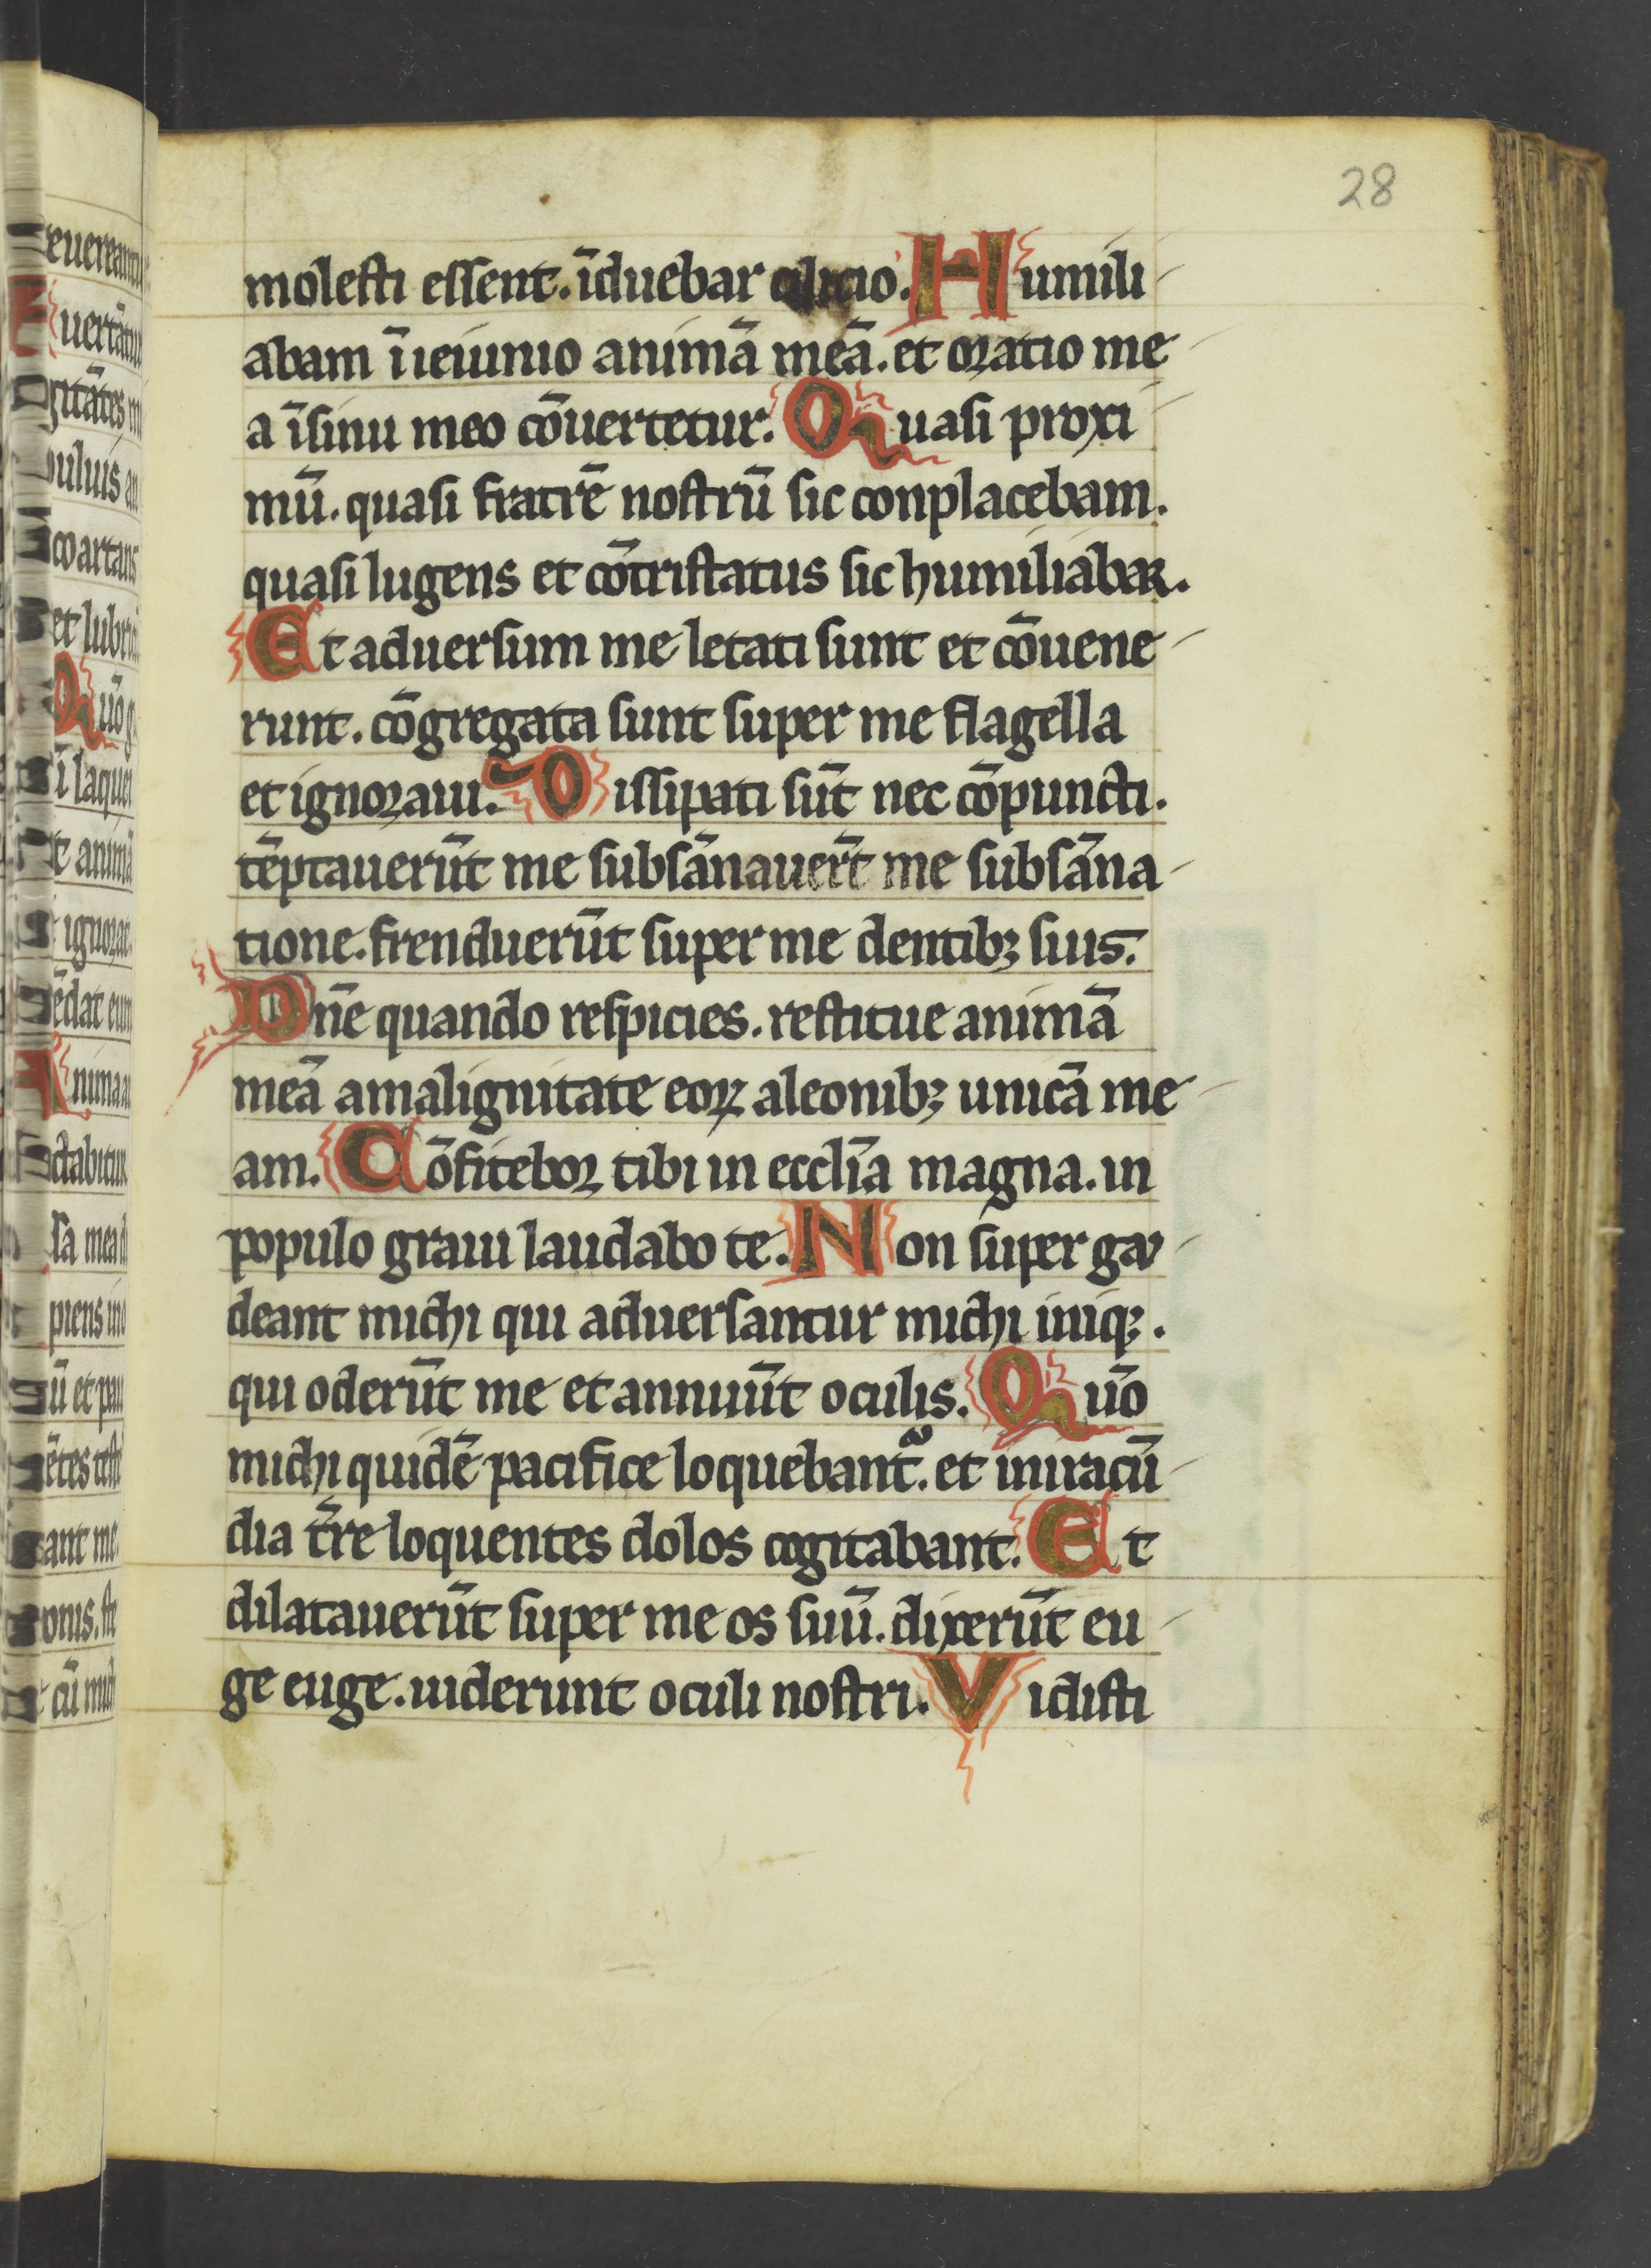 28
molesti essent. īduebar cilicio. Humili-
abam ī ieiunio animā meā. et oratio me-
a īsinu meo cōuertetur. Quasi proxi-
mū. quasi fratrē nostrū sic conplacebam.
quasi lugens et cōtristatus sic humiliabar.
Et aduersum me letati sunt et cōuene-
runt. cōgregata sunt super me flagella
et ignoraui. Dissipati sūt nec cōpuncti.
tēptauerūt me subsānauert̄ me subsāna-
tione. frenduerūt super me dentibꝫ suis.
Dn̄e quando respicies. restitue animā
meā amalignitate eoꝝ aleonibꝫ unicā me-
am. Cōfitebor tibi in eccl̄ia magna. in
populo graui laudabo te. Non super gau-
deant michi qui aduersantur michi iniqꝫ.
qui oderūt me et annuūt oculis. Qūo
michi quidē pacifice loquebant᷑. et iniracū-
dia t̄re loquentes dolos cogitabant. Et
dilatauerūt super me os suū. dixerūt eu-
ge euge. uiderunt oculi nostri. Vidisti